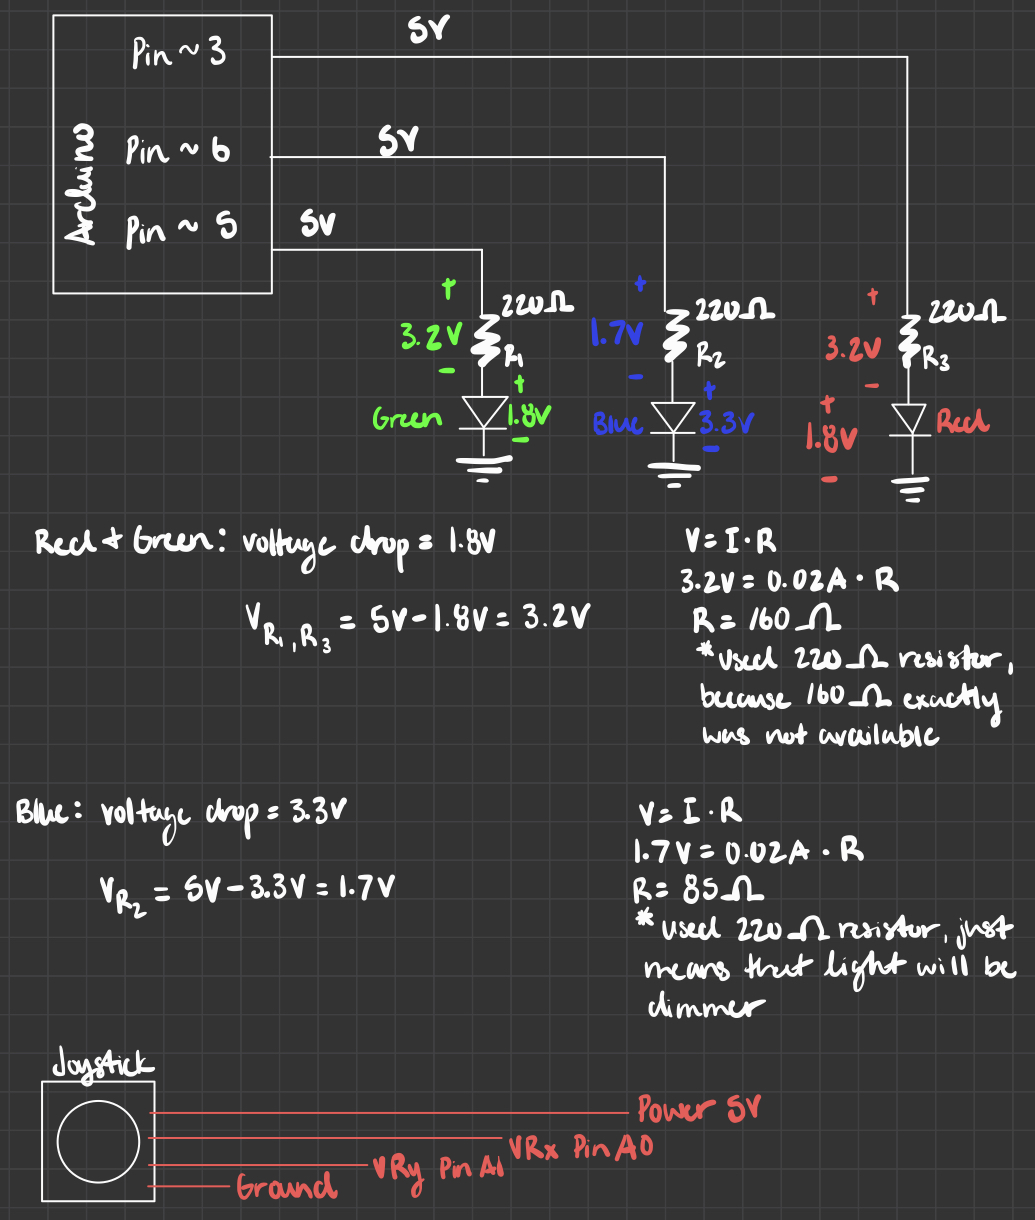 5V
Pin ~ 3
5V
Pin ~ 6
5V
Pin ~ 5
Arduino
+
3.2V
-
220Ω
R1
Green
+
1.8V
-
+
1.7V
-
220Ω
R2
Blue
+
3.3V
-
+
3.2V
-
220Ω
R3
+
1.8V
-
Red
Red + Green: voltage drop = 1.8V
V_R1,R3 = 5V - 1.8V = 3.2V
V = I · R
3.2V = 0.02A · R
R = 160 Ω
*used 220 Ω resistor,
because 160 Ω exactly
was not available
Blue: voltage drop = 3.3V
V_R2 = 5V - 3.3V = 1.7V
V = I · R
1.7V = 0.02A · R
R = 85 Ω
*used 220 Ω resistor, just
means that light will be
dimmer
Joystick
Power 5V
VRx Pin A0
VRy Pin A1
Ground